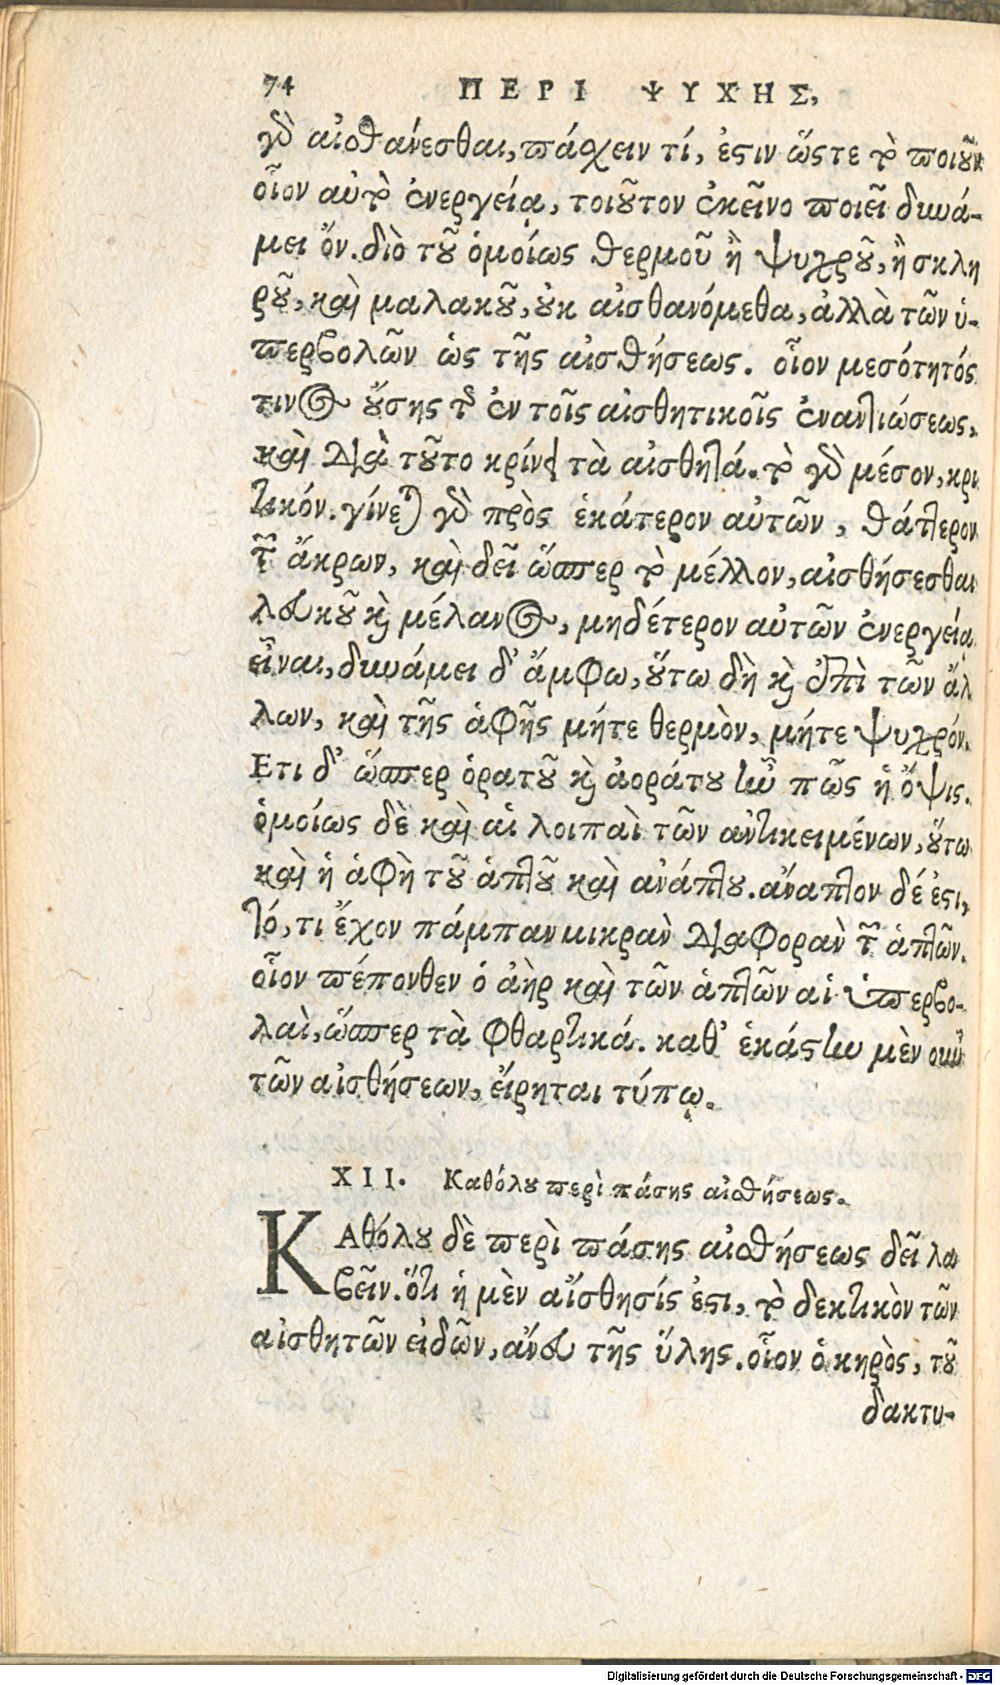 74 ΠΕΡΙ ΨΥΧΗΣ,
γὸ αἰσθάνεσθαι, πάσχειν τί, ἐστιν ὥστε τὸ ποιοῦν
οἷον αὐτὸ ἐνεργείᾳ, τοιοῦτον ἐκεῖνο ποιεῖ δυνά-
μει ὄν. διὸ τοῦ ὁμοίως θερμοῦ ἢ ψυχροῦ, ἢ σκλη
ροῦ, καὶ μαλακοῦ, οὐκ αἰσθανόμεθα, ἀλλὰ τῶν ὑ-
περβολῶν ὡς τῆς αἰσθήσεως. οἷον μεσότητός
τινος οὔσης τῆς ἐν τοῖς αἰσθητικοῖς ἐναντιώσεως,
καὶ διὰ τοῦτο κρίνει τὰ αἰσθητά. τὸ γὸ μέσον, κρι
τικόν. γίνεται γὸ πρὸς ἑκάτερον αὐτῶν, θάτερον
τῶν ἄκρων, καὶ δεῖ ὥσπερ τὸ μέλλον, αἰσθήσεσθαι
λευκοῦ καὶ μέλανος, μηδέτερον αὐτῶν ἐνεργείᾳ
εἶναι, δυνάμει δ' ἄμφω, οὕτω δὴ καὶ ἐπὶ τῶν ἄλ
λων, καὶ τῆς ἁφῆς μήτε θερμὸν, μήτε ψυχρόν.
Ετι δ' ὥσπερ ὁρατοῦ καὶ ἀοράτου ἦν πῶς ἡ ὄψις.
ὁμοίως δὲ καὶ αἱ λοιπαὶ τῶν ἀντικειμένων, οὕτω
καὶ ἡ ἁφὴ τοῦ ἁπτοῦ καὶ ἀνάπτου. ἀναπτον δέ ἐστι,
τό, τι ἔχον πάμπαν μικρὰν διαφορὰν τῶν ἁπτῶν.
οἷον πέπονθεν ὁ ἀὴρ καὶ τῶν ἁπτῶν αἱ ὑπερβο-
λαὶ, ὥσπερ τὰ φθαρτικά. καθ' ἑκάστην μὲν οὖν
τῶν αἰσθήσεων, εἴρηται τύπῳ.
XII. Καθόλου περὶ πάσης αἰσθήσεως.
ΚΑθόλου δὲ περὶ πάσης αἰσθήσεως δεῖ λα
βεῖν. ὅτι ἡ μὲν αἴσθησίς ἐστι, τὸ δεκτικὸν τῶν
αἰσθητῶν εἰδῶν, ἄνευ τῆς ὕλης. οἷον ὁ κηρὸς, τοῦ
δακτυ-
Digitalisierung gefördert durch die Deutsche Forschungsgemeinschaft - DFG